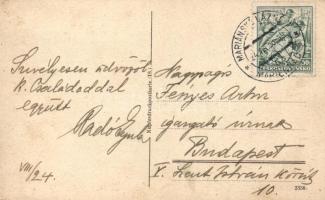 Szivélyesen üdvözöl
k. Családoddal
együtt
Radó Gyula
VIII/24.
Nagyságos
Fényes Artur
igazgató úrnak
Budapest
V. Szent István körút
10.
MARIÁNSKÉ LÁZNĚ
ČESKOSLOVENSKO